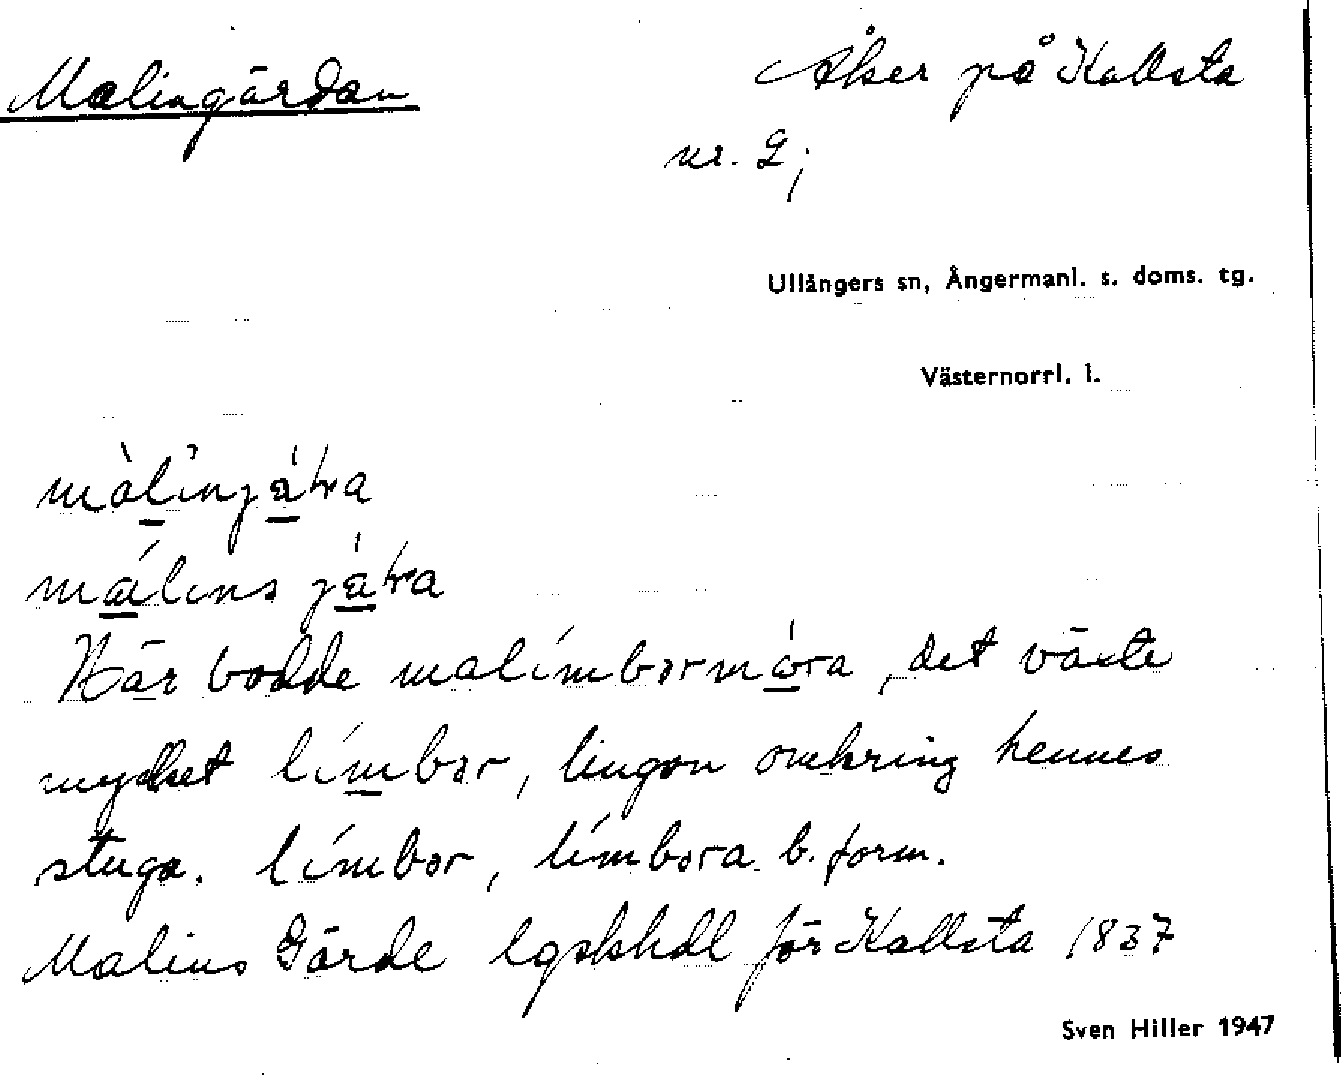 Malingärdan
Åker på Kallsta
nr. 2;
Ullångers sn, Ångermanl. s. doms. tg.
Västernorrl. l.
Här bodde malímbormora, det växte
mycket límbor, lingon omkring hennes
stuga. límbor, límbora b. form.
Malins Gärde lgskhdl för Kallsta 1837
Sven Hiller 1947